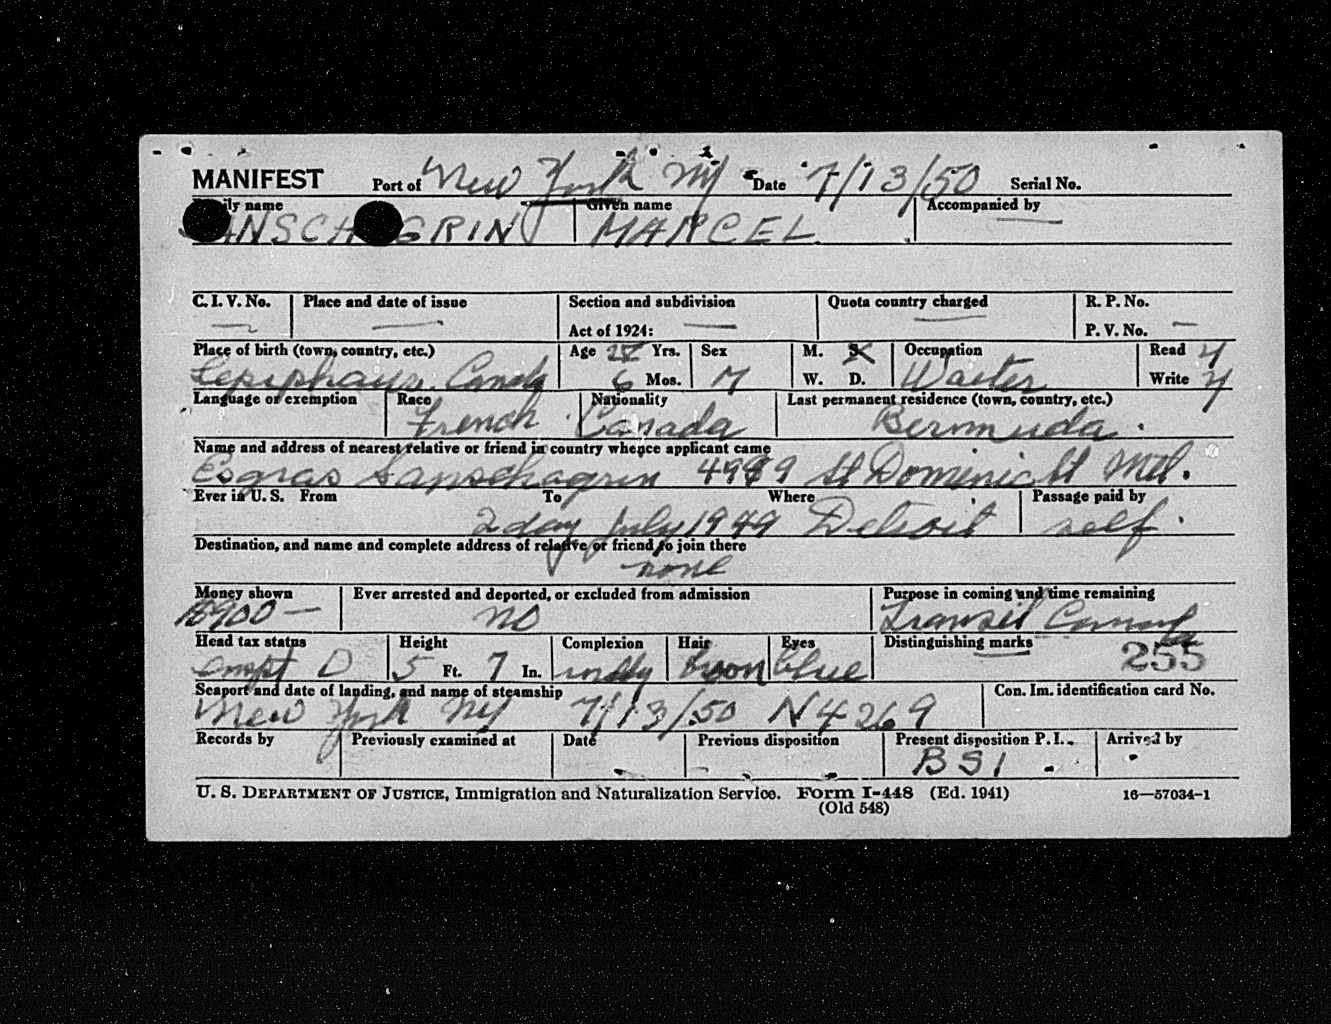 MANIFEST Port of New York NY Date 7/13/50 Serial No.
ily name Given name Accompanied by
ANSCHAGRIN MARCEL —
C. I. V. No. Place and date of issue Section and subdivision Quota country charged R. P. No.
— — Act of 1924: — — P. V. No. —
Place of birth (town, country, etc.) Age Yrs. Sex M. S. Occupation Read Y
Lepiphany. Canada 6 Mos. M W. D. Waiter Write Y
Language or exemption Race Nationality Last permanent residence (town, country, etc.)
French Canada Bermuda.
Name and address of nearest relative or friend in country whence applicant came
Esgras Sanschagrin 4979 St Dominic St Mtl.
Ever in U. S. From To Where Passage paid by
2 day July 1949 Detroit self.
Destination, and name and complete address of relative or friend to join there
none
Money shown Ever arrested and deported, or excluded from admission Purpose in coming and time remaining
900— NO Transit Canada
Head tax status Height Complexion Hair Eyes Distinguishing marks
5 Ft. 7 In. blue — 255
Seaport and date of landing, and name of steamship Con. Im. identification card No.
New York NY 7/13/50 N4269
Records by Previously examined at Date Previous disposition Present disposition P. I. Arrived by
BSI
U. S. DEPARTMENT OF JUSTICE, Immigration and Naturalization Service. Form I-448 (Ed. 1941) 16—57034-1
(Old 548)